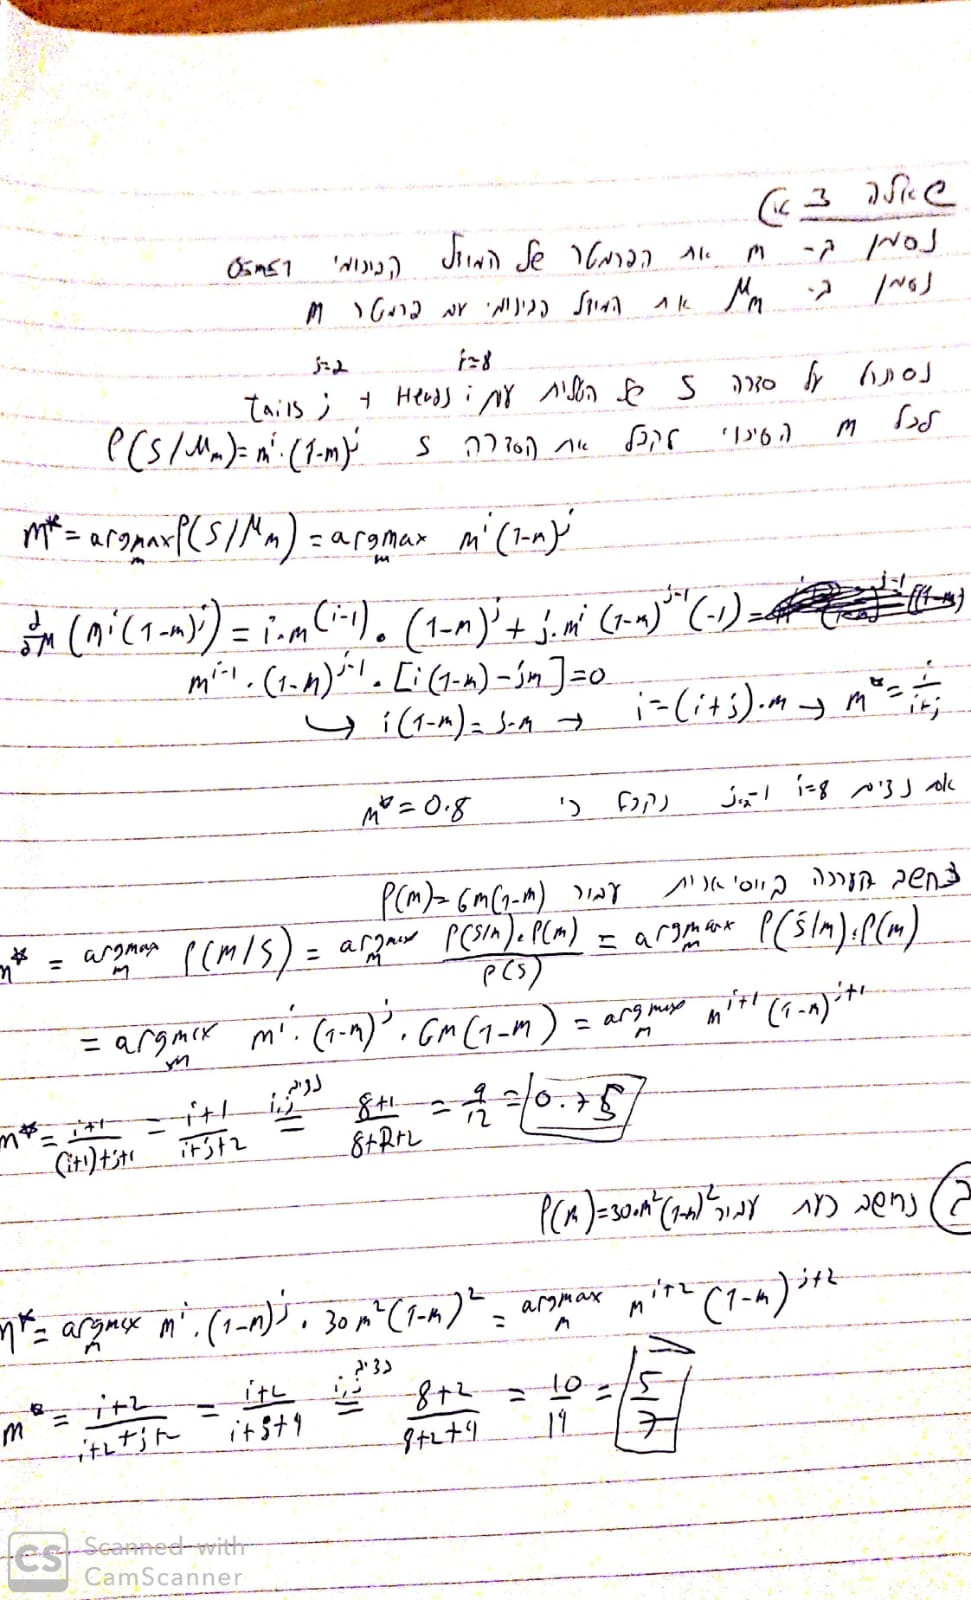 שאלה 3 א)
נסמן ב- m את הפרמטר של המודל הבינומי
נסמן ב- Mₘ את המודל הבינומי עם פרמטר m
i=8 j=2
נסתכל על סדרה S של הטלות עם i Heads ו j tails
לכל m הסיכוי לקבל את הסדרה S P(S/Mₘ)=mⁱ·(1-m)ʲ
m* = argmax P(S/Mₘ) = argmax mⁱ(1-m)ʲ
m m
∂/∂m (mⁱ(1-m)ʲ) = i·m^(i-1) · (1-m)ʲ + j·mⁱ(1-m)^(j-1)(-1) =
m^(i-1) · (1-m)^(j-1) · [i(1-m) - jm] = 0
↪ i(1-m) = j·m → i=(i+j)·m → m* = i/(i+j)
אם נציב i=8 נקבל כי m* = 0.8
נחשב הערכה בייסיאנית עבור P(m)=6m(1-m)
m* = argmax P(m/S) = argmax P(S/m)·P(m)/P(S) = argmax P(S/m)·P(m)
m m m
= argmax mⁱ·(1-m)ʲ·6m(1-m) = argmax m^(i+1) (1-m)^(j+1)
m m
נציב i,j
m* = (i+1)/((i+1)+j+1) = (i+1)/(i+j+2) = (8+1)/(8+2+2) = 9/12 = 0.75
ב) נחשב כעת עבור P(m)=30·m²(1-m)²
m* = argmax mⁱ·(1-m)ʲ · 30m²(1-m)² = argmax m^(i+2) (1-m)^(j+2)
m m
נציב i,j
m* = (i+2)/(i+2+j+2) = (i+2)/(i+j+4) = (8+2)/(8+2+4) = 10/14 = 5/7
CS Scanned with
CamScanner